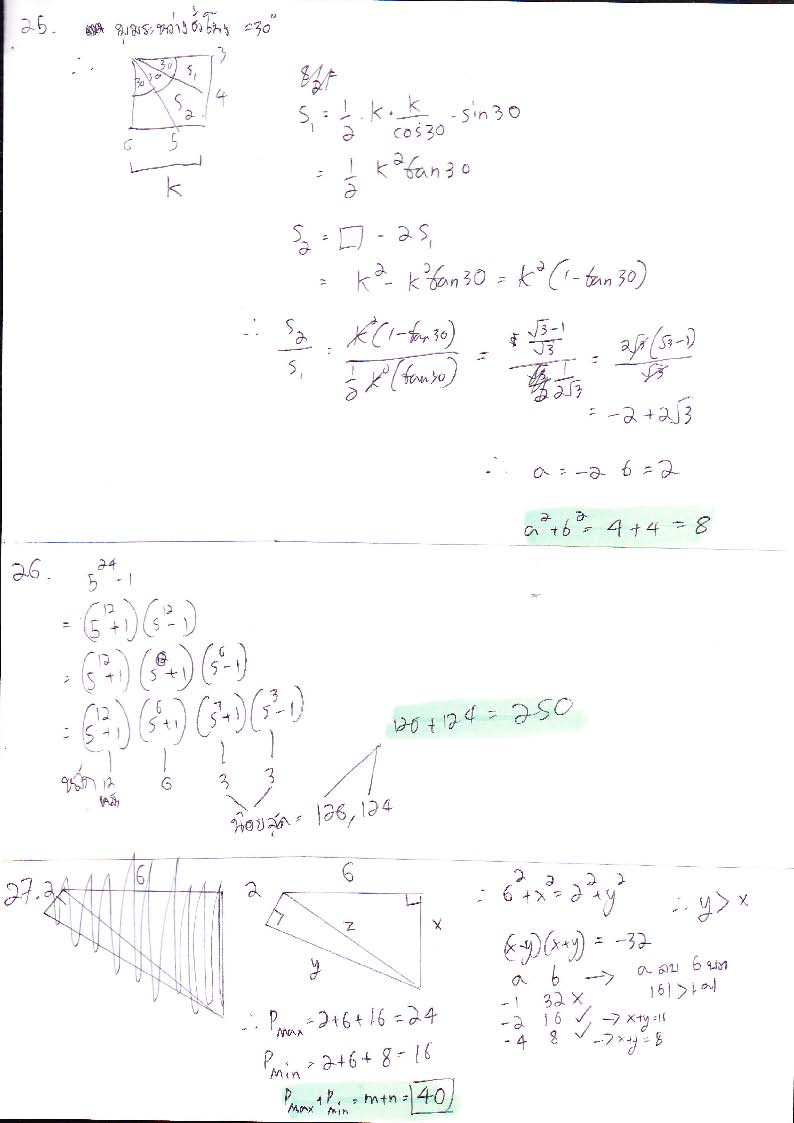 25. มุมระหว่างชั่วโมง = 30°
∴
30 30 30 S₁ S₂ 3 4 5 6
k
S₁ = 1/2 · k · k/cos30 · sin30
= 1/2 k² tan30
S₂ = □ - 2S₁
= k² - k² tan30 = k² (1 - tan30)
∴ S₂/S₁ = k²(1-tan30) / 1/2 k²(tan30) = (√3-1)/√3 / 1/(2√3) = 2√3(√3-1)/√3
= -2 + 2√3
∴ a = -2 b = 2
a² + b² = 4 + 4 = 8
26. 5²⁴ - 1
= (5¹² + 1) (5¹² - 1)
= (5¹² + 1) (5⁶ + 1) (5⁶ - 1)
= (5¹² + 1) (5⁶ + 1) (5³ + 1) (5³ - 1)
12 6 3 3
น้อยสุด = 126, 124
126 + 124 = 250
27. 2 6
2 6 x y z
∴ 6² + x² = 2² + y² ∴ y > x
(x-y)(x+y) = -32
a b → a ลบ b บวก
|b| > |a|
-1 32 ×
-2 16 ✓ → x+y = 16
-4 8 ✓ → x+y = 8
∴ Pmax = 2 + 6 + 16 = 24
Pmin = 2 + 6 + 8 = 16
Pmax + Pmin = m+n = 40